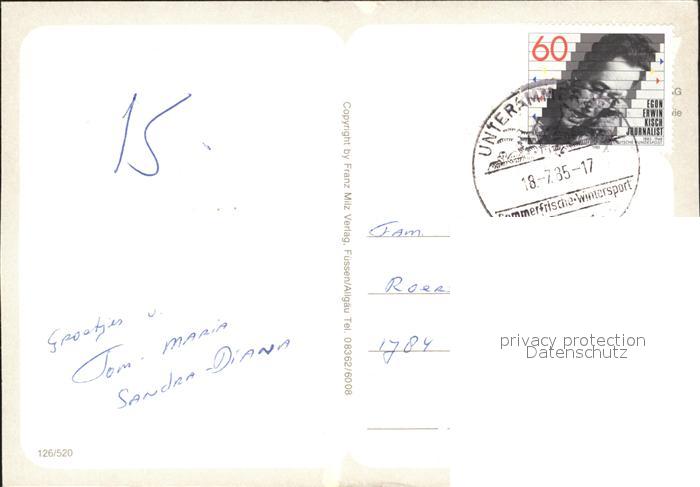 60
EGON
ERWIN
KISCH
JOURNALIST
DEUTSCHE BUNDESPOST
18.-7.85-17
Sommerfrische-Wintersport
15
Copyright by Franz Milz Verlag, Füssen/Allgäu Tel. 08362/6008
Fam.
1784
privacy protection
Datenschutz
Groetjes v.
Tom. MARIA
SANdRA-DIANA
126/520